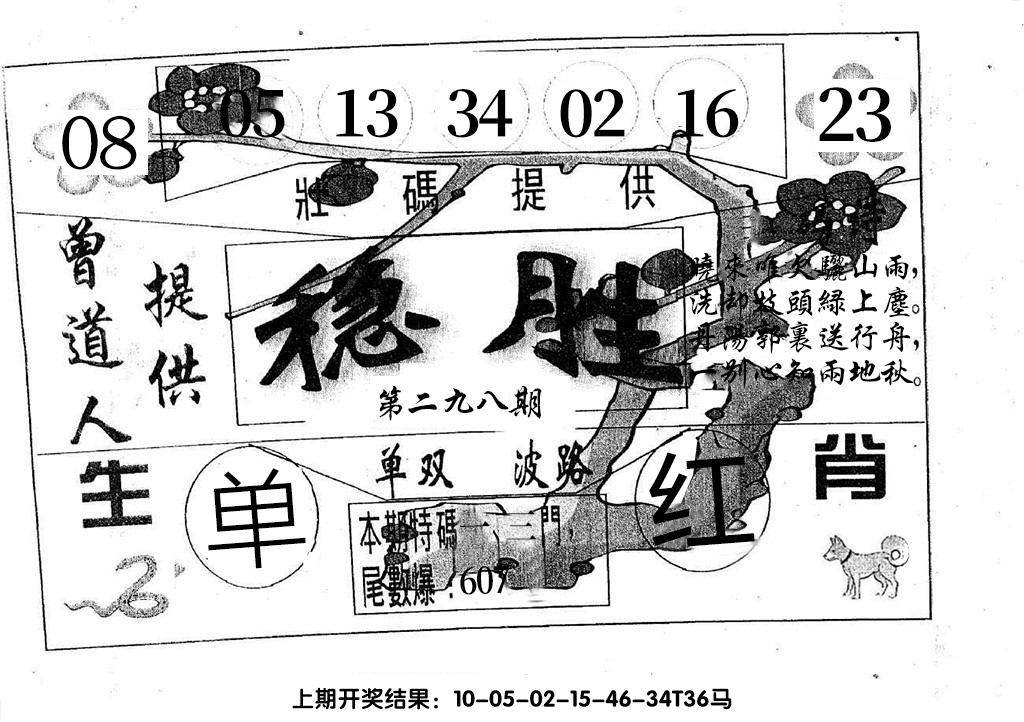 08 05 13 34 02 16 23
壯碼提供
曾道人
提供
稳胜
第二九八期
曉來唯欠驪山雨，
洗却枝頭綠上塵。
丹陽郭裏送行舟，
一别心知兩地秋。
单双 波路
生肖
单
红
本期特碼一、三門，
尾數爆：607
上期开奖结果：10-05-02-15-46-34T36马